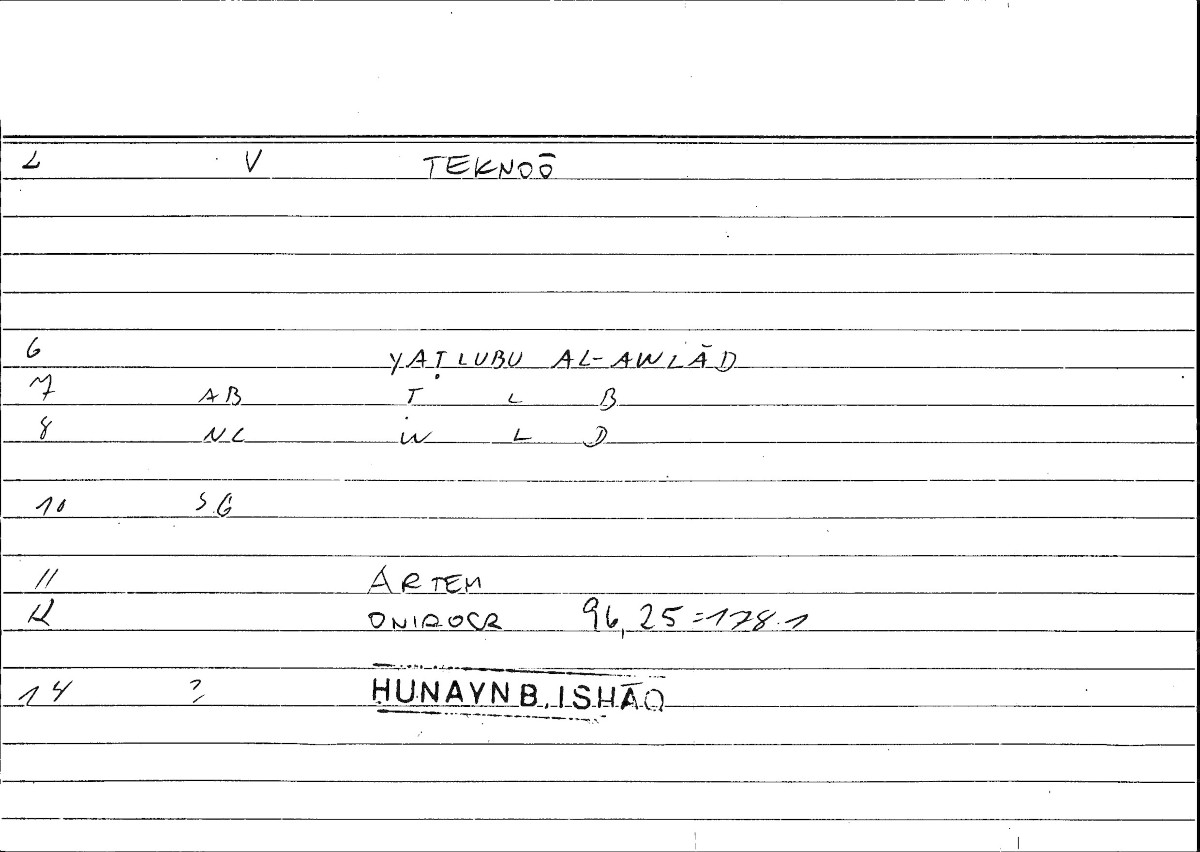 2 V TEKNOŌ
6 YAṬLUBU AL-AWLĀD
7 AB Ṭ L B
8 NC W L D
10 SG
11 ARTEM
12 ONIROCR 96,25=178.1
14 ? ḤUNAYN B. ISḤĀQ